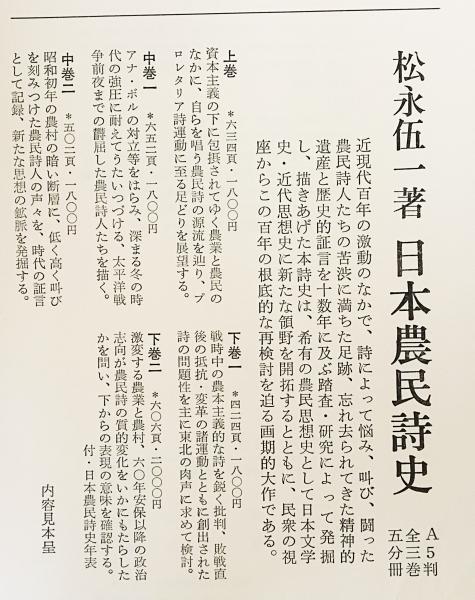 松永伍一著 日本農民詩史
A5判
全三巻
五分冊
近現代百年の激動のなかで、詩によって悩み、叫び、闘った
農民詩人たちの苦渋に満ちた足跡、忘れ去られてきた精神的
遺産と歴史的証言を十数年に及ぶ踏査・研究によって発掘
し、描きあげた本詩史は、希有の農民思想史として日本文学
史・近代思想史に新たな領野を開拓するとともに、民衆の視
座からこの百年の根底的な再検討を迫る画期的大作である。
上巻 *六三四頁・一八〇〇円
資本主義の下に包摂されてゆく農業と農民の
なかに、自らを唱う農民詩の源流を辿り、プ
ロレタリア詩運動に至る足どりを展望する。
中巻一 *六五二頁・一八〇〇円
アナ・ボルの対立等をはらみ、深まる冬の時
代の強圧に耐えてうたいつづける、太平洋戦
争前夜までの欝屈した農民詩人たちを描く。
中巻二 *五〇二頁・一八〇〇円
昭和初年の農村の暗い断層に、低く高く叫び
を刻みつけた農民詩人の声々を、時代の証言
として記録、新たな思想の鉱脈を発掘する。
下巻一 *四二四頁・一八〇〇円
戦時中の農本主義的な詩を鋭く批判、敗戦直
後の抵抗・変革の諸運動とともに創出された
詩の問題性を主に東北の肉声に求めて検討。
下巻二 *六〇六頁・二〇〇〇円
激変する農業と農村、六〇年安保以降の政治
志向が農民詩の質的変化をいかにもたらした
かを問い、下からの表現の意味を確認する。
付・日本農民詩史年表
内容見本呈